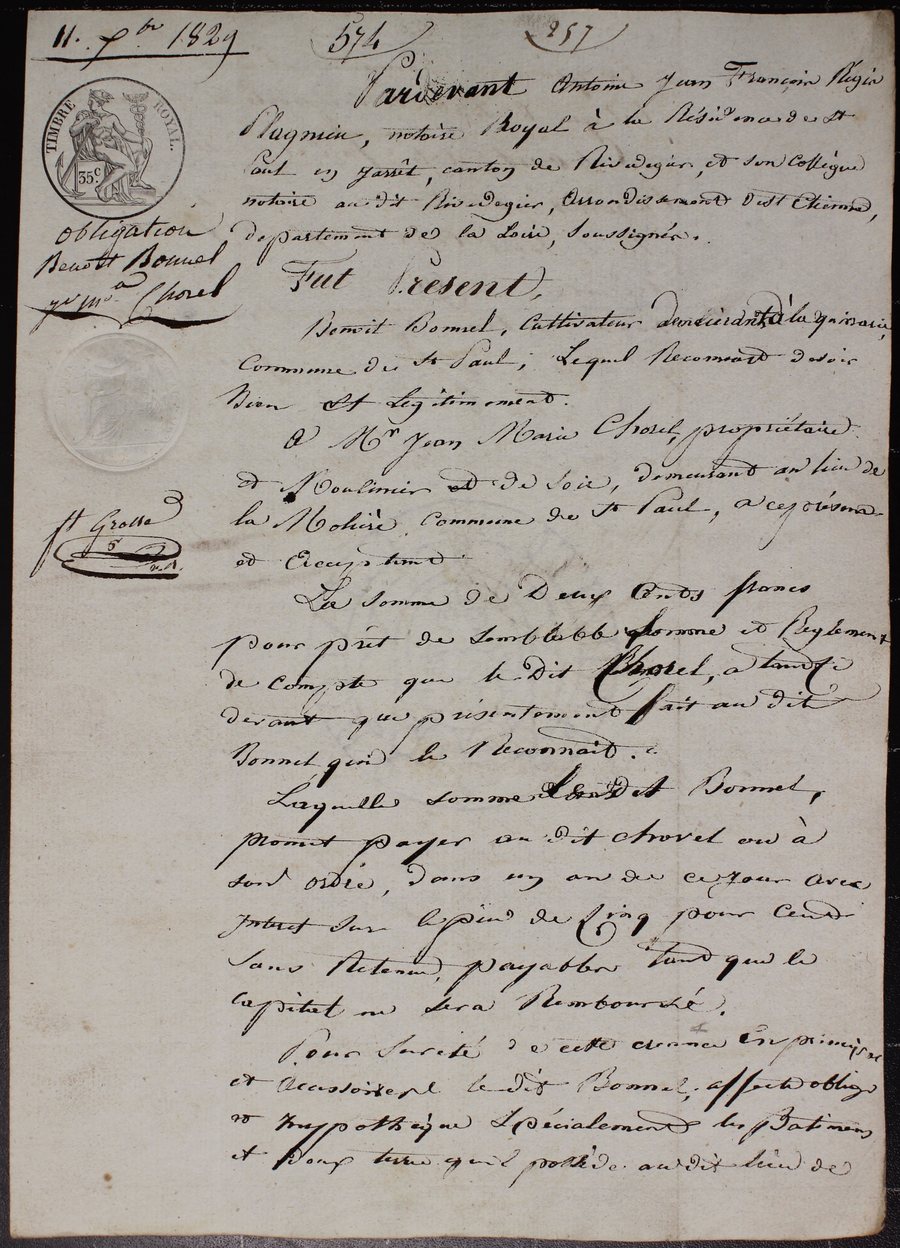 11. 7bre 1829
574
257
TIMBRE ROYAL.
35c.
obligation
Benoit Bonnel
Chorel
ft Grosse
Pardevant Antoine Jean François Régis
Plagnieu, notaire Royal à la Résidence de St
Paul en Jarrêt, canton de Rivedegier, et son Collègue
notaire au dit Rivedegier, Arrondissement de St Etienne,
département de la Loire, soussignés.
Fut Présent,
Benoit Bonnel, Cultivateur demeurant à la
Commune de St Paul; Lequel Reconnait devoir
Bien et Légitimement.
A Mr Jean Marie Chorel, propriétaire
et Moulinier de Soie, demeurant au lieu de
la Molière Commune de St Paul, a ce présent
et Acceptant.
La somme de Deux Cents francs
pour prêt de semblable somme et Reglement
de Compte que le Dit Chorel, a tant ci
devant que présentement fait au dit
Bonnel qui le Reconnait.
Laquelle somme Ledit Bonnel,
promet payer au dit Chorel ou à
son ordre, dans un an de ce jour avec
Intret sur le pied de Cinq pour Cent
sans Retenue, payables tant que le
Capital ne sera Remboursé.
Pour sureté de cette creance En principal
et accessoires le dit Bonnel, affecte oblige
et hypothèque Spécialement les Batimens
et deux terre qu'il possède au dit lieu de